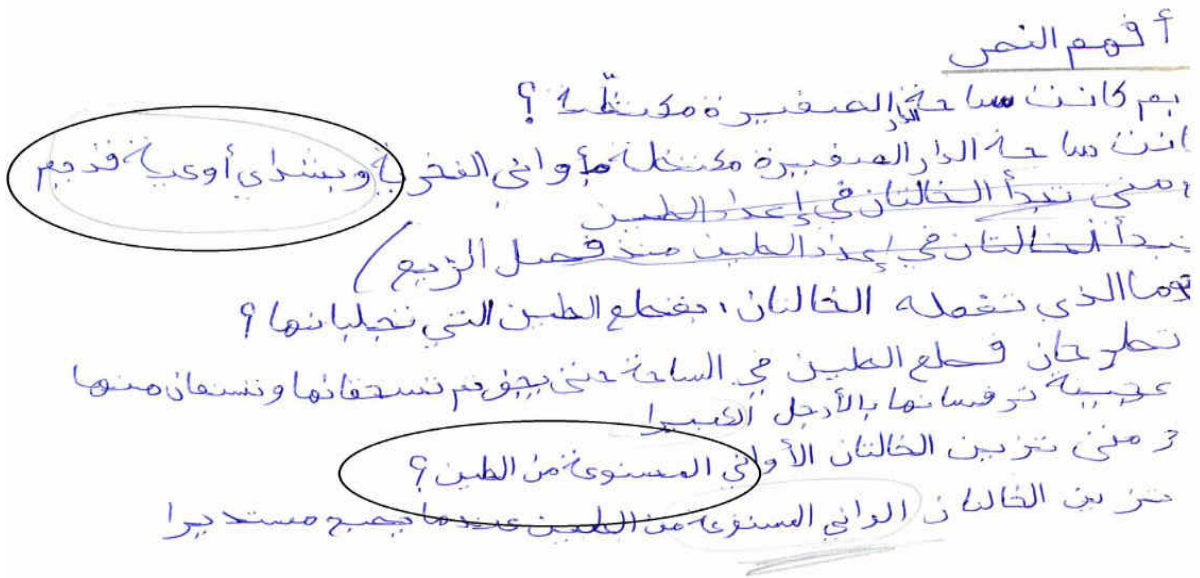 أفهم النص
بم كانت ساحة الدار الصغيرة مكتظّة ؟
انت ساحة الدار الصغيرة مكتظة بأواني الفخرية وبشراي أوعية فذيم
متى تبدأ الخالتان في إعداد الطين
تبدأ الخالتان في إعداد الطين منذ فصل الربيع
وما الذي تفعله الخالتان، بقطع الطين التي تجلبانها ؟
تطرحان قطع الطين في الساحة حتى يجف ثم تسحقانها وتسعان منها
عجيبة ترفسانها بالأرجل الكبيرا
و متى تزين الخالتان الأواني المسنوعة من الطين ؟
تزين الخالتان الواني المسنوعة من الطين عندما يصبح مستديرا